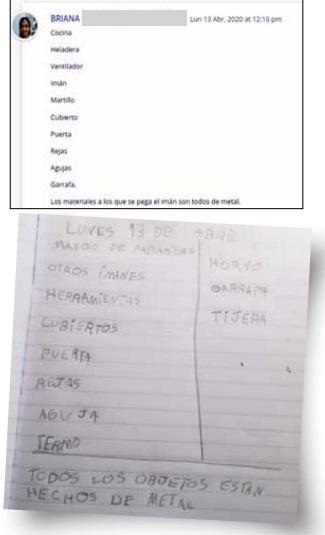 BRIANA
Lun 13 Abr, 2020 at 12:16 pm
Cocina
Heladera
Ventilador
Imán
Martillo
Cubierto
Puerta
Rejas
Agujas
Garrafa.
Los materiales a los que se pega el imán son todos de metal.
LUNES 13 DE ABRIL
MANGO DE PARAGUAS
OTROS IMANES
HERRAMIENTAS
CUBIERTOS
PUERTA
REJAS
AGUJA
TERMO
HORNO
GARRAFA
TIJERA
TODOS LOS OBJETOS ESTAN
HECHOS DE METAL